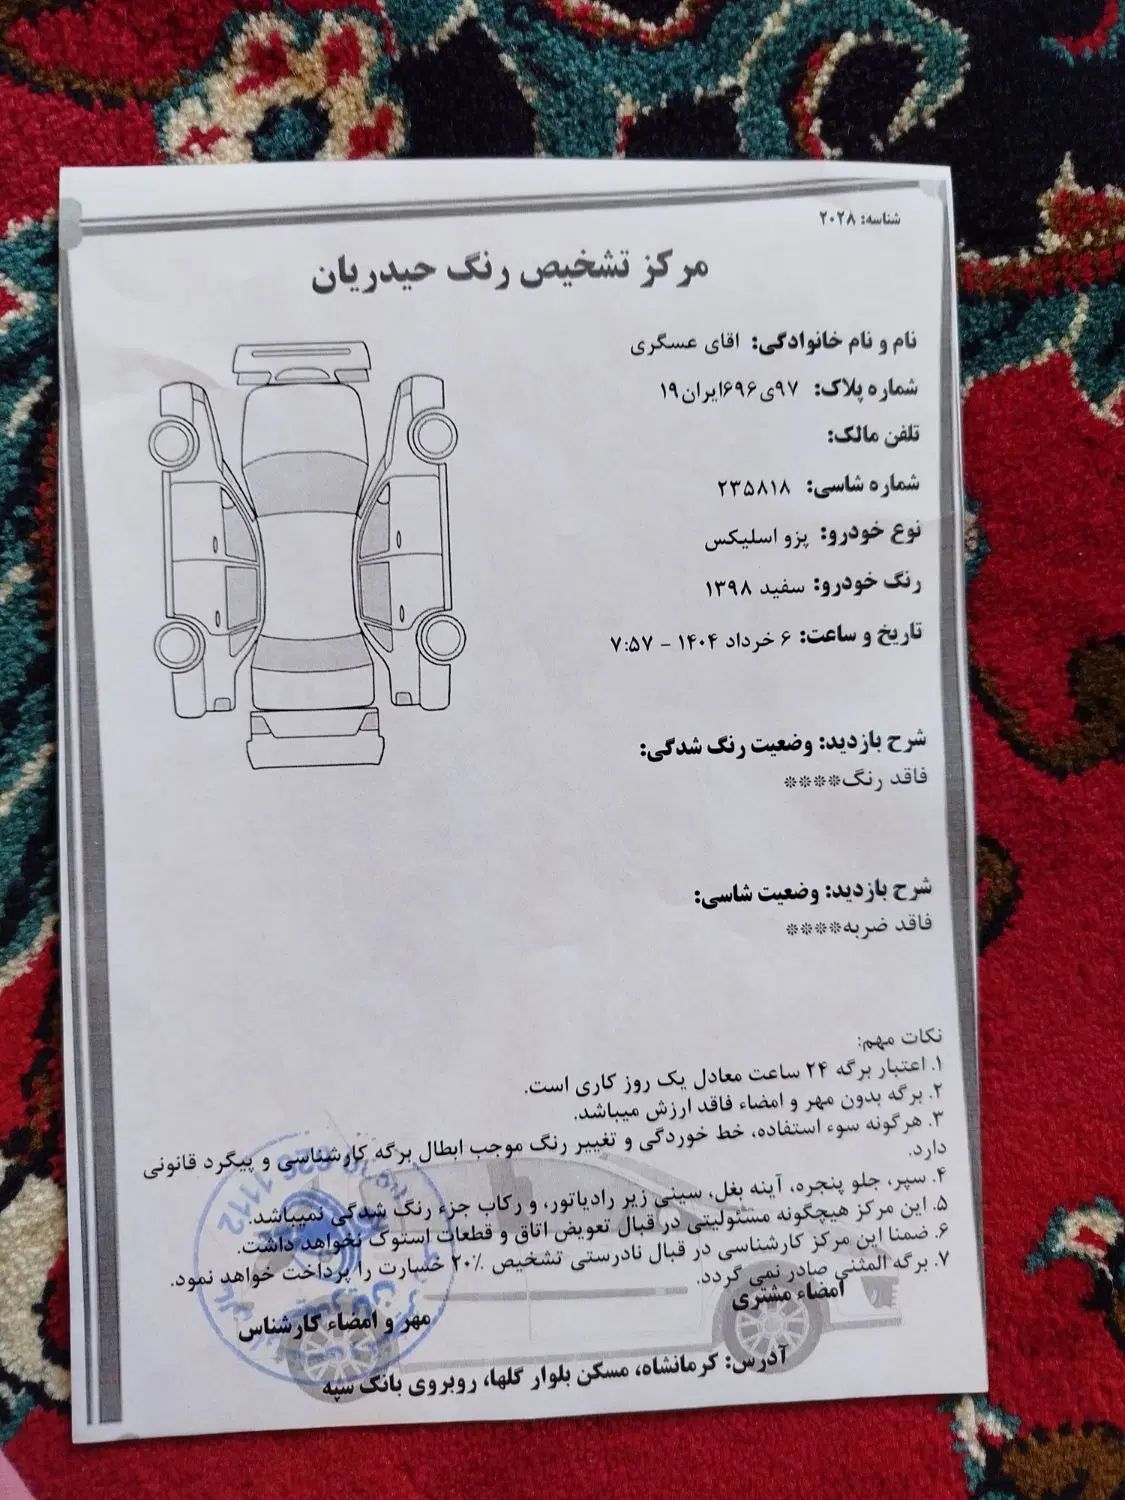 شناسه: ۲۰۲۸
مرکز تشخیص رنگ حیدریان
نام و نام خانوادگی: اقای عسگری
شماره پلاک: ۹۷ی۶۹۶ایران۱۹
تلفن مالک:
شماره شاسی: ۲۳۵۸۱۸
نوع خودرو: پزو اسلیکس
رنگ خودرو: سفید ۱۳۹۸
تاریخ و ساعت: ۶ خرداد ۱۴۰۴ - ۷:۵۷
شرح بازدید: وضعیت رنگ شدگی:
فاقد رنگ****
شرح بازدید: وضعیت شاسی:
فاقد ضربه****
نکات مهم:
۱. اعتبار برگه ۲۴ ساعت معادل یک روز کاری است.
۲. برگه بدون مهر و امضاء فاقد ارزش میباشد.
۳. هرگونه سوء استفاده، خط خوردگی و تغییر رنگ موجب ابطال برگه کارشناسی و پیگرد قانونی
دارد.
۴. سپر، جلو پنجره، آینه بغل، سینی زیر رادیاتور، و رکاب جزء رنگ شدگی نمیباشد.
۵. این مرکز هیچگونه مسئولیتی در قبال تعویض اتاق و قطعات استوک نخواهد داشت.
۶. ضمنا این مرکز کارشناسی در قبال نادرستی تشخیص ۲۰٪ خسارت را پرداخت خواهد نمود.
۷. برگه المثنی صادر نمی گردد.
امضاء مشتری
مهر و امضاء کارشناس
آدرس: کرمانشاه، مسکن بلوار گلها، روبروی بانک سپه